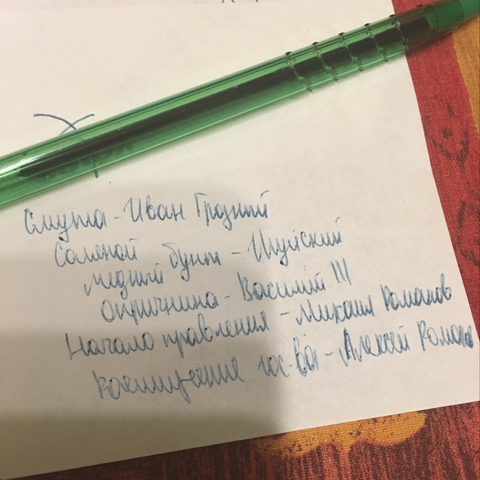 Смута - Иван Грозный
Соляной
медный бунт - Шуйский
опричнина - Василий III
Начало правления - Михаил Романов
расширение гос-ва - Алексей Роман